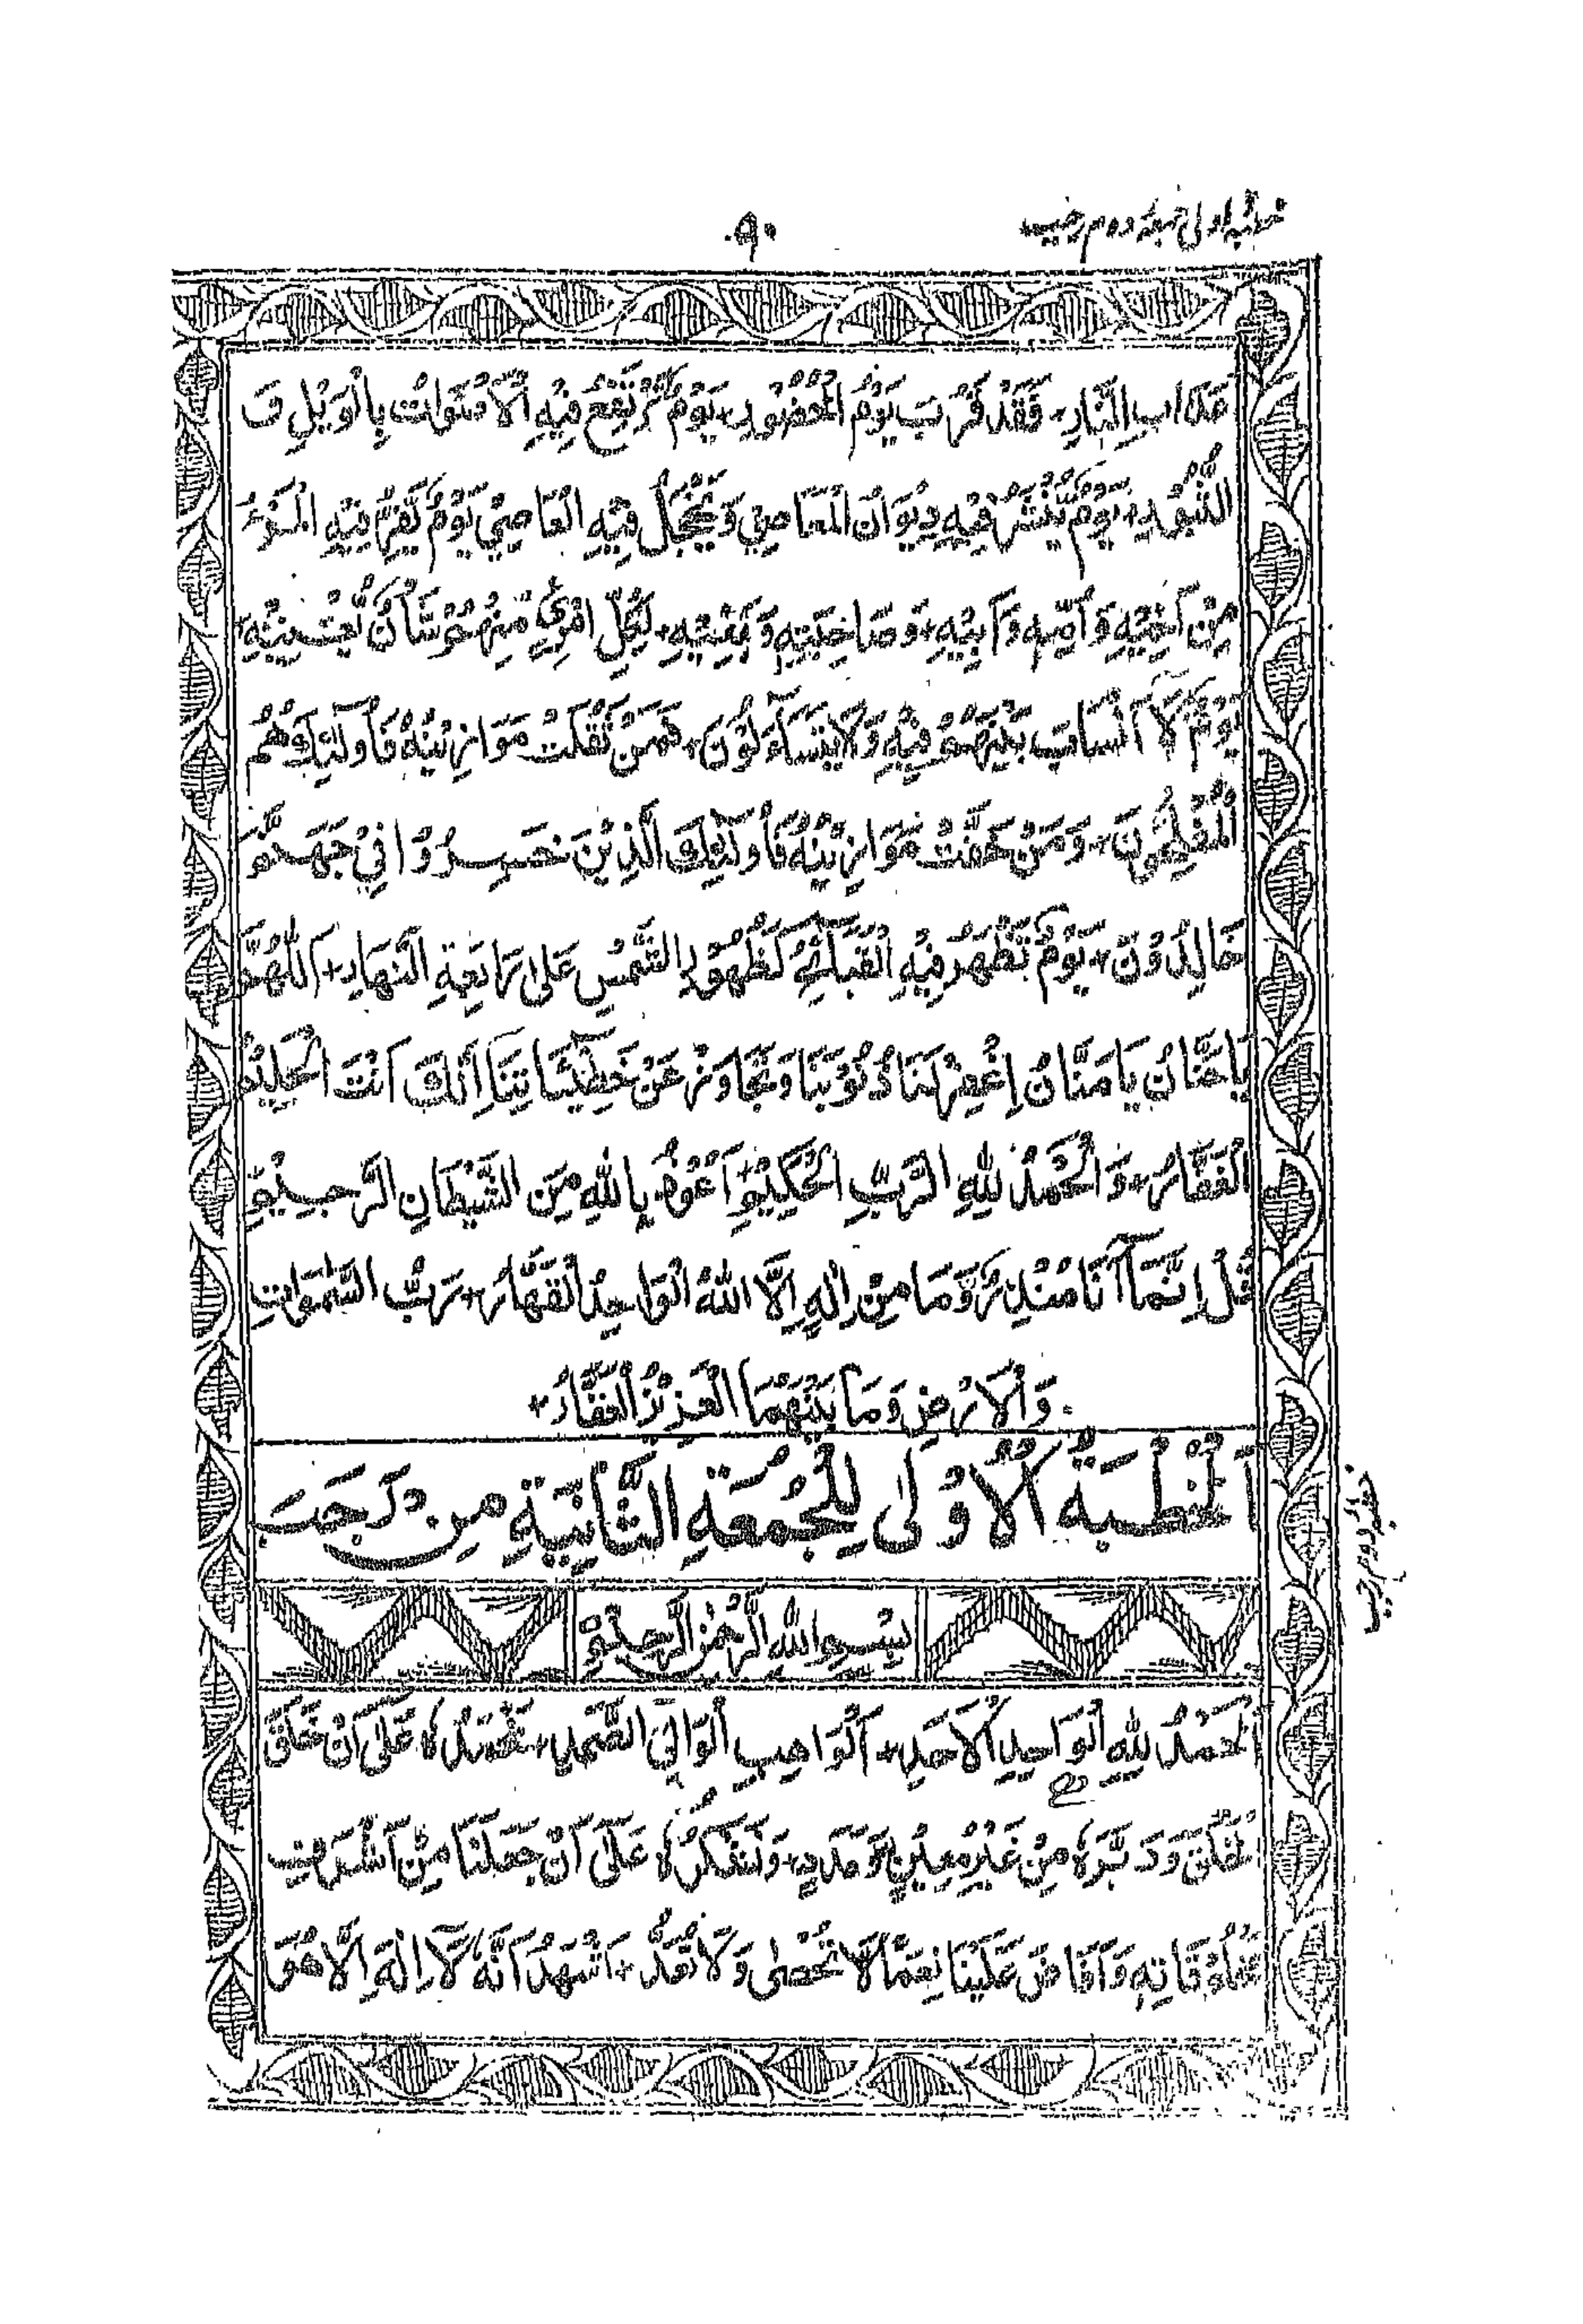 خطبه اولی جمعه دوم رجب
٩٠
عَذَابِ النَّارِ+ فَقَدْ قَرُبَ يَوْمُ الْحُضُورِ+ يَوْمٌ تُرْتَفَعُ فِيْهِ الْاَصْوَاتُ بِالْوَيْلِ وَ
الثُّبُوْرِ+ يَوْمٌ يُنْشَرُ فِيْهِ دِيْوَانُ الْمَعَاصِيْ وَيَخْجَلُ فِيْهِ الْعَاصِيْ يَوْمٌ يَفِرُّ فِيْهِ الْمَرْءُ
مِنْ اَخِيْهِ وَاُمِّهِ وَاَبِيْهِ+ وَصَاحِبَتِهِ وَبَنِيْهِ+ لِكُلِّ امْرِئٍ مِنْهُمْ شَاْنٌ يُغْنِيْهِ+
يَوْمٌ لَا اَنْسَابَ بَيْنَهُمْ فِيْهِ وَلَا يَتَسَآءَلُوْنَ+ فَمَنْ ثَقُلَتْ مَوَازِيْنُهُ فَاُولٰئِكَ هُمُ
الْمُفْلِحُوْنَ+ وَمَنْ خَفَّتْ مَوَازِيْنُهُ فَاُولٰئِكَ الَّذِيْنَ خَسِرُوْا فِيْ جَهَنَّمَ
خَالِدُوْنَ+ يَوْمٌ تَظْهَرُ فِيْهِ الْقَبَائِحُ كَظُهُوْرِ الشَّمْسِ عَلٰى رَابِعَةِ النَّهَارِ+ اَللّٰهُمَّ
يَا حَنَّانُ يَا مَنَّانُ اِغْفِرْ لَنَا ذُنُوْبَنَا وَتَجَاوَزْ عَنْ خَطِيْئَاتِنَا اِنَّكَ اَنْتَ الْحَلِيْمُ
الْغَفَّارُ+ وَالْحَمْدُ لِلّٰهِ الرَّبِّ الْحَكِيْمِ+ اَعُوْذُ بِاللّٰهِ مِنَ الشَّيْطَانِ الرَّجِيْمِ
قُلْ اِنَّمَا اَنَا مُنْذِرٌ وَّمَا مِنْ اِلٰهٍ اِلَّا اللّٰهُ الْوَاحِدُ الْقَهَّارُ+ رَبُّ السَّمٰوٰاتِ
وَالْاَرْضِ وَمَا بَيْنَهُمَا الْعَزِيْزُ الْغَفَّارُ+
اَلْخُطْبَةُ الْاُوْلٰى لِلْجُمُعَةِ الثَّانِيَةِ مِنْ رَجَبَ
خطبه دوم رجب
بِسْمِ اللّٰهِ الرَّحْمٰنِ الرَّحِيْمِ
اَلْحَمْدُ لِلّٰهِ الْوَاحِدِ الْاَحَدِ+ اَلْوَاهِبِ الْوَافِيَ الصَّمَدِ+ نَحْمَدُهُ عَلٰى اَنْ خَلَقَ
الْخَلْقَ وَدَبَّرَهُ مِنْ غَيْرِ مُعِيْنٍ وَّمَدَدٍ+ وَنَشْكُرُهُ عَلٰى اَنْ جَعَلَنَا مِنْ اَشْرَفِ
مَخْلُوْقَاتِهِ وَاَفَاضَ عَلَيْنَا نِعَمًا لَا تُحْصٰى وَلَا تُعَدُّ+ اَشْهَدُ اَنَّهُ لَا اِلٰهَ اِلَّا هُوَ